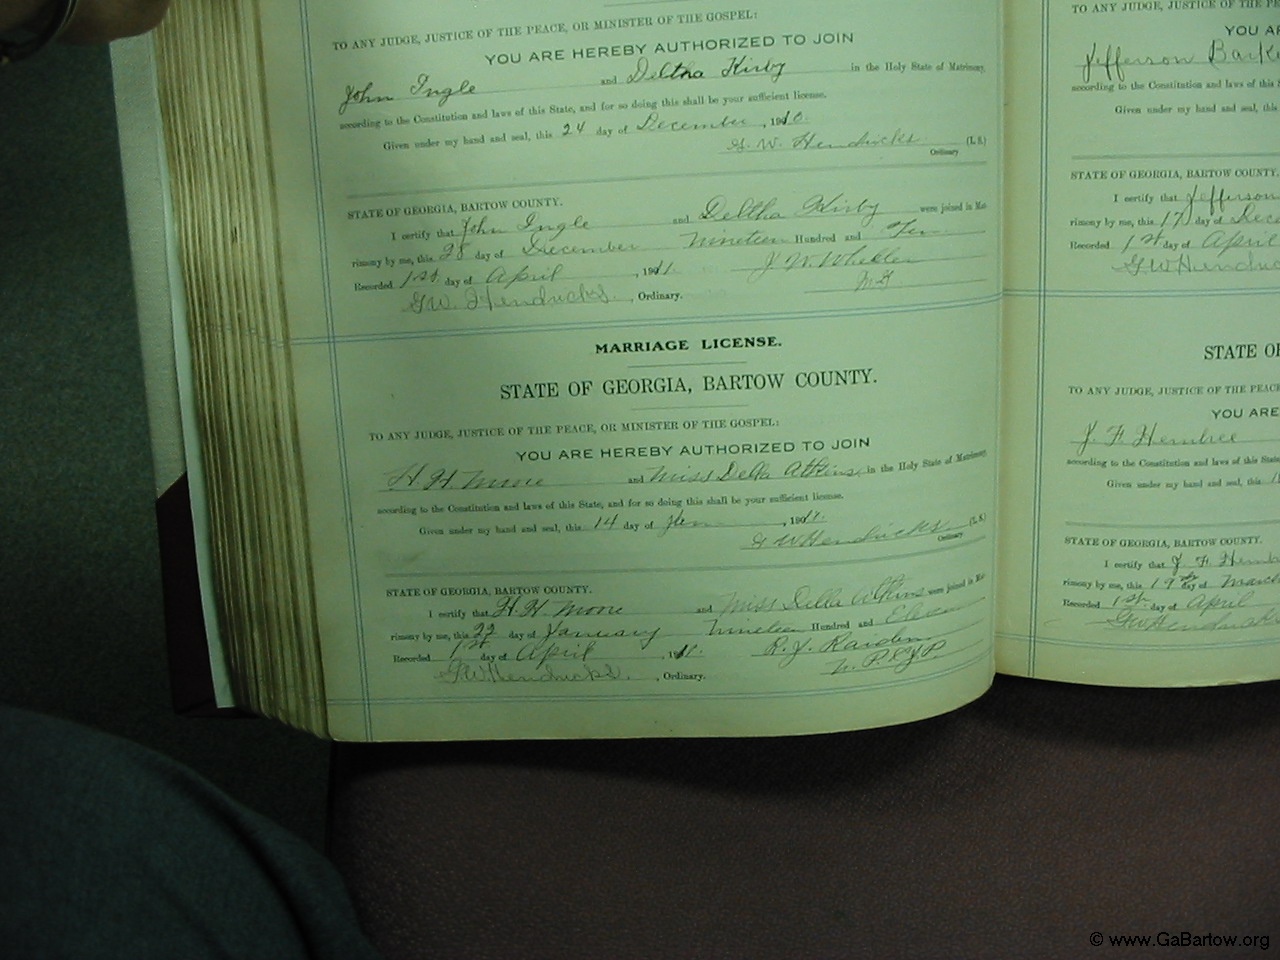 TO ANY JUDGE, JUSTICE OF THE PEACE, OR MINISTER OF THE GOSPEL:
YOU ARE HEREBY AUTHORIZED TO JOIN
John Ingle and Deltha Kirby in the Holy State of Matrimony,
according to the Constitution and laws of this State, and for so doing this shall be your sufficient license.
Given under my hand and seal, this 24 day of December, 1910.
G. W. Hendricks (L. S.)
Ordinary
STATE OF GEORGIA, BARTOW COUNTY.
I certify that John Ingle and Deltha Kirby were joined in Mat-
rimony by me, this 28 day of December Nineteen Hundred and Ten
Recorded 1st. day of April, 1911. J W Wheeler
G.W. Hendricks, Ordinary. M G
MARRIAGE LICENSE.
STATE OF GEORGIA, BARTOW COUNTY.
TO ANY JUDGE, JUSTICE OF THE PEACE, OR MINISTER OF THE GOSPEL:
YOU ARE HEREBY AUTHORIZED TO JOIN
H. H. Moore and Miss Della Atkins in the Holy State of Matrimony
according to the Constitution and laws of this State, and for so doing this shall be your sufficient license.
Given under my hand and seal, this 14 day of Jan, 1911.
G W Hendricks (L. S.)
Ordinary
STATE OF GEORGIA, BARTOW COUNTY.
I certify that H. H. Moore and Miss Della Atkins were joined in Mat-
rimony by me, this 22 day of January Nineteen Hundred and Eleven
Recorded 1st day of April, 1911. R. J. Raiden
G.W. Hendricks, Ordinary. N. P. & J P.
TO ANY JUDGE, JUSTICE OF THE PE
YOU A
Jefferson Bark
according to the Constitution and laws of this
Given under my hand and seal, this
STATE OF GEORGIA, BARTOW COUNTY.
I certify that Jefferson
rimony by me, this 17 day of Dec
Recorded 1st day of April
G W Hendric
STATE O
TO ANY JUDGE, JUSTICE OF THE PEACE
YOU ARE
J. F. Hembree
according to the Constitution and laws of this State
Given under my hand and seal, this 1
STATE OF GEORGIA, BARTOW COUNTY.
I certify that J F. Hemb
rimony by me, this 19th day of March
Recorded 1st. day of April
G W Hendricks
© www.GaBartow.org